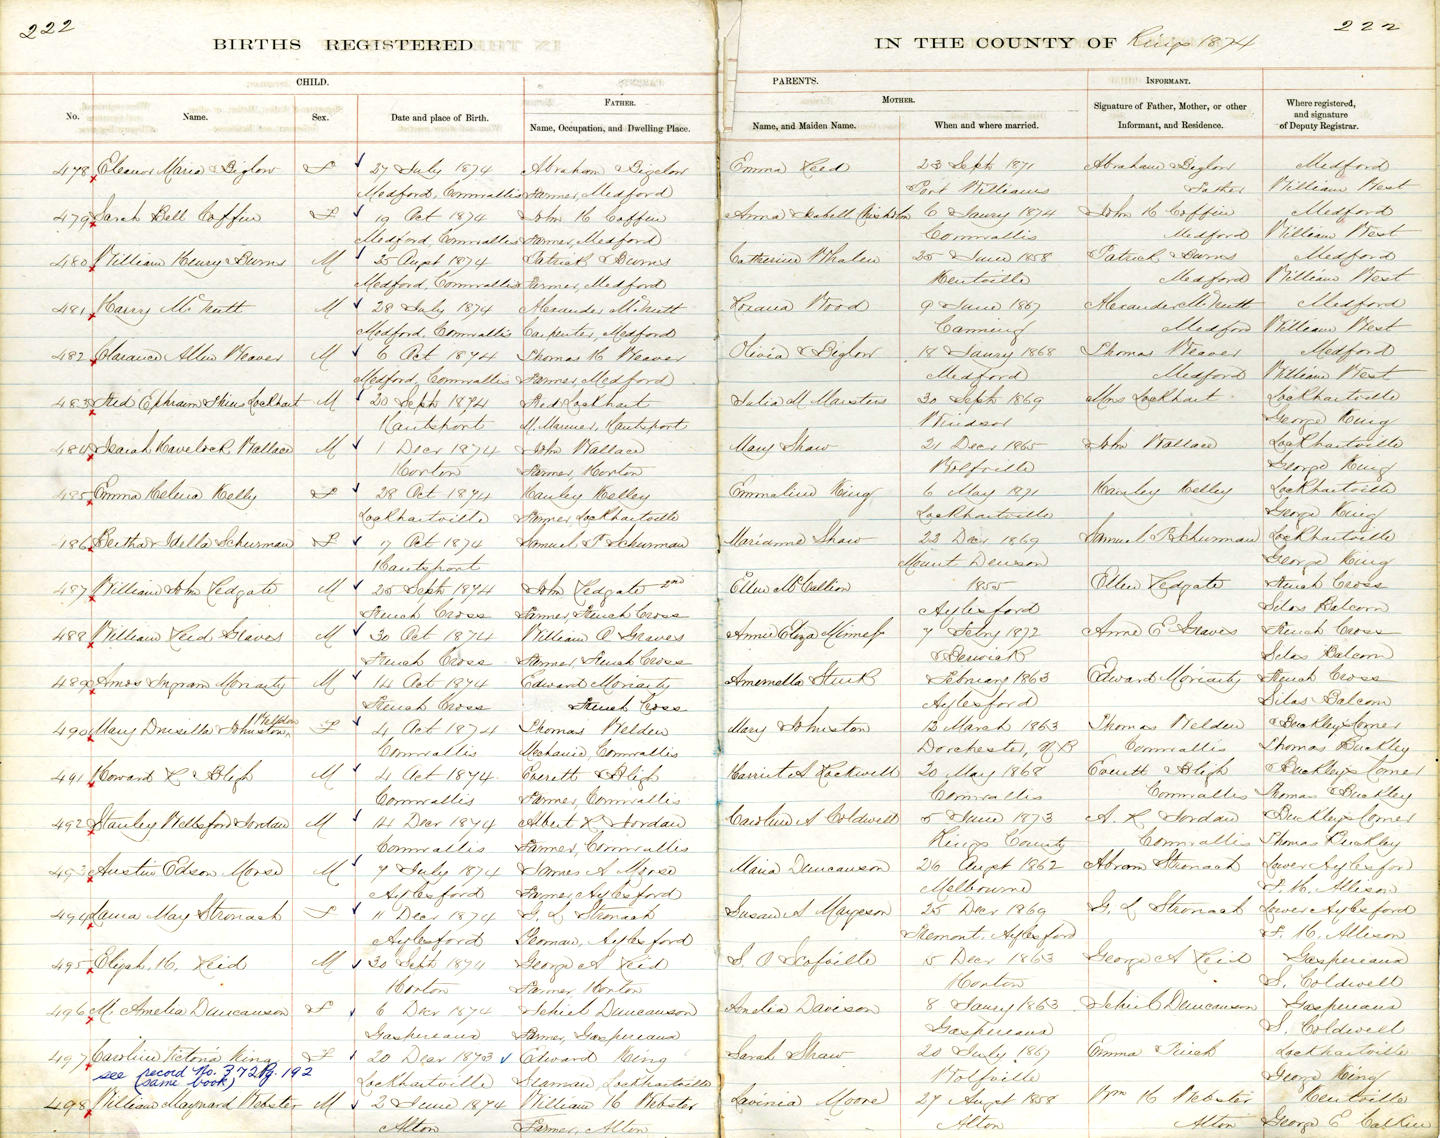 222
222
BIRTHS REGISTERED
IN THE COUNTY OF Kings 1874
CHILD.
PARENTS.
INFORMANT.
FATHER.
MOTHER.
No.
Name.
Sex.
Date and place of Birth.
Name, Occupation, and Dwelling Place.
Name, and Maiden Name.
When and where married.
Signature of Father, Mother, or other Informant, and Residence.
Where registered, and signature of Deputy Registrar.
478 Eleanor Maria Biglow F 27 July 1874 Abraham Bigelow Emma Reid 23 Sept 1871 Abraham Biglow Medford
Medford, Cornwallis Farmer, Medford Port Williams Father William West
479 Sarah Bell Coffin F 19 Oct 1874 John H Coffin Anna Isabell Chisholm 6 Jaury 1874 John H Coffin Medford
Medford, Cornwallis Farmer, Medford Cornwallis Medford William West
480 William Henry Burns M 25 Augst 1874 Patrick Burns Catherine Whalen 25 June 1858 Patrick Burns Medford
Medford, Cornwallis Farmer, Medford Kentville Medford William West
481 Harry McNutt M 28 July 1874 Alexander McNutt Wood 9 June 1867 Alexander McNutt Medford
Medford, Cornwallis Carpenter, Medford Canning Medford William West
482 Clarance Allen Weaver M 6 Oct 1874 Thomas H Weaver Olivia Biglow 18 Jaury 1868 Thomas Weaver Medford
Medford, Cornwallis Farmer, Medford Medford Medford William West
483 Fred Ephraim Lockhart M 20 Sept 1874 Fred Lockhart Julia M Marsters 30 Sept 1869 Mrs Lockhart Lockhartville
Hantsport M. Mariner, Hantsport Windsor George King
484 Isaiah Havelock Wallace M 1 Decr 1974 John Wallace Mary Shaw 21 Decr 1865 John Wallace Lockhartville
Horton Farmer, Horton Wolfville George King
485 Emma Helena Kelly F 28 Oct 1874 Hanley Kelley Emmaline King 6 May 1871 Hanley Kelley Lockhartville
Lockhartville Farmer, Lockhartville Lockhartville George King
486 Bertha Idella Schurman F 17 Oct 1874 Samuel P Schurman Marianne Shaw 23 Decr 1869 Samuel P Schurman Lockhartville
Hantsport Mount Denson George King
487 William John Redgate M 25 Sept 1874 John Redgate 2nd Ellen McCallion 1855 Ellen Redgate French Cross
French Cross Farmer, French Cross Aylesford Silas Balcom
488 William Reid Graves M 30 Oct 1874 William O Graves Annie Eliza 7 Febry 1872 Anne E Graves French Cross
French Cross Farmer French Cross Berwick Silas Balcom
489 Amos Ingram Moriarty M 14 Oct 1874 Edward Moriarty February 1863 Edward Moriarity French Cross
French Cross French Cross Aylesford Silas Balcom
490 Mary Drusilla Johnston Weldon F 4 Oct 1874 Thomas Welden Mary Johnston 12 March 1863 Thomas Welden Buckley's Corner
Cornwallis Mechanic, Cornwallis Dorchester, N B Cornwallis Thomas Buckley
491 Howard R Bligh M 4 Oct 1874 Everett Bligh Harriet A Rockwell 20 May 1868 Everett Bligh Buckley's Corner
Cornwallis Farmer, Cornwallis Cornwallis Cornwallis Thomas Buckley
492 Stanley Wellsford Jordan M 14 Decr 1874 Albert R Jordan Caroline A Coldwell 5 June 1873 A. R Jordan Buckley's Corner
Cornwallis Farmer, Cornwallis Kings County Cornwallis Thomas Buckley
493 Austin Edson Morse M 7 July 1874 James A Morse Maria Duncanson 26 Augst 1862 Abram Stronach Lower Aylesford
Aylesford Farmer, Aylesford Melbourne F. H. Allison
494 Laura May Stronach F 11 Decr 1874 G. L Stronach Susan A 25 Decr 1869 G. L Stronach Lower Aylesford
Aylesford Yeoman, Aylesford Tremont, Aylesford F. H. Allison
495 Elijah H. Reid M 30 Sept 1874 George A Reid S. O Schofville 5 Decr 1863 George A Reid Gaspereaux
Horton Farmer Horton Horton S. Coldwell
496 M. Amelia Duncanson F 6 Decr 1874 Jehiel Duncanson Amelia Davison 8 Jaury 1863 Jehiel C Duncanson Gaspereaux
Gaspereaux Farmer, Gaspereaux Gaspereaux S. Coldwell
497 Caroline Victoria King F 20 Decr 1873 Edward King Sarah Shaw 20 July 1867 Emma Finch Lockhartville
see record No. 372 Pg. 192 Lockhartville Seaman, Lockhartville Wolfville George King
(same book)
498 William Maynard Webster M 2 June 1874 William H Webster Lavinia Moore 27 Augst 1858 Wm H Webster Kentville
Alton Farmer, Alton Alton Alton George E Calkin